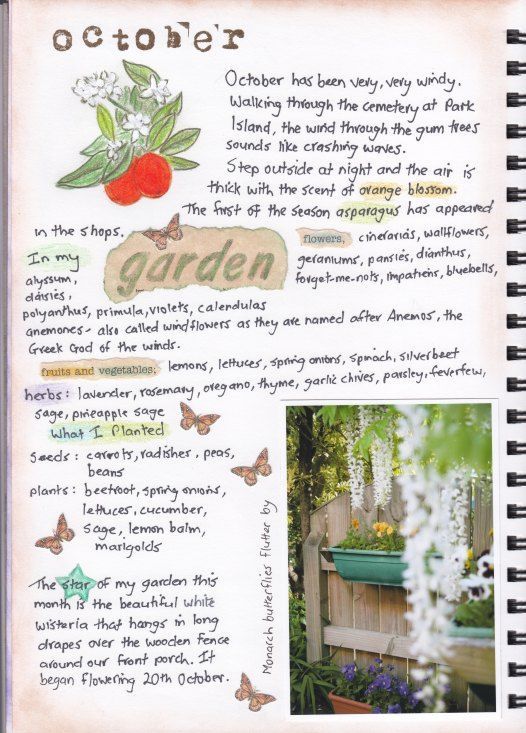 october
October has been very, very windy.
Walking through the cemetery at Park
Island, the wind through the gum trees
sounds like crashing waves.
Step outside at night and the air is
thick with the scent of orange blossom.
The first of the season asparagus has appeared
in the shops.
In my garden
flowers, cinerarias, wallflowers,
geraniums, pansies, dianthus,
forget-me-nots, impatiens, bluebells,
alyssum,
daisies,
polyanthus, primula, violets, calendulas
anemones - also called windflowers as they are named after Anemos, the
Greek God of the winds.
fruits and vegetables; lemons, lettuces, spring onions, spinach, silverbeet
herbs: lavender, rosemary, oregano, thyme, garlic chives, parsley, feverfew,
sage, pineapple sage
What I Planted
Seeds: carrots, radishes, peas,
beans
plants: beetroot, spring onions,
lettuces, cucumber,
sage, lemon balm,
marigolds
The star of my garden this
month is the beautiful white
wisteria that hangs in long
drapes over the wooden fence
around our front porch. It
began flowering 20th October.
Monarch butterflies flutter by